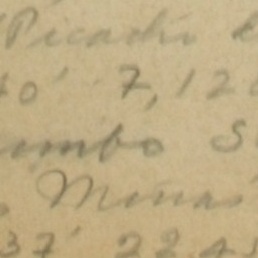 "Picacho
40' 7,12
umbo S
"Minas"
37' 22,45